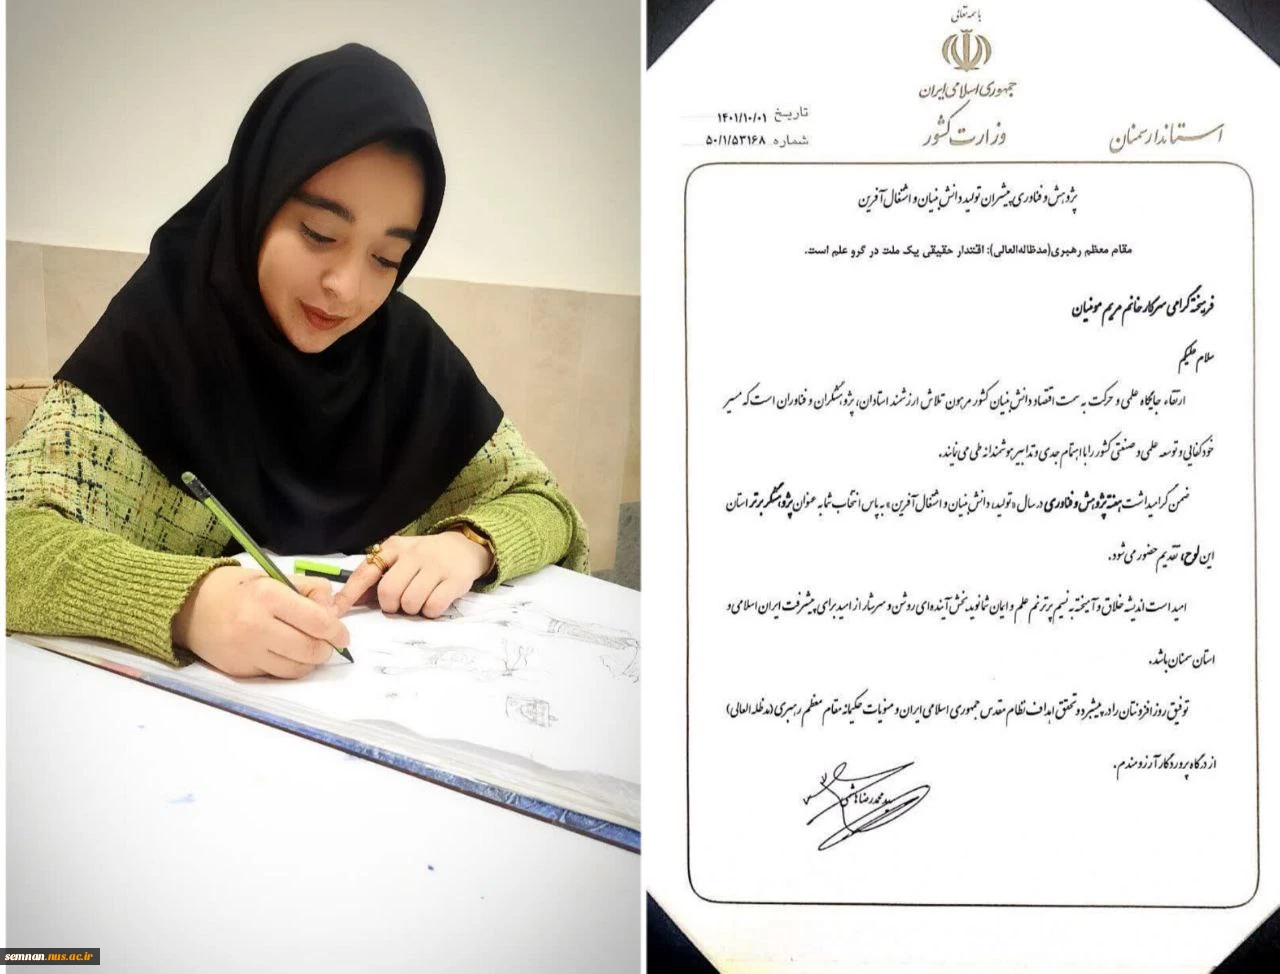 باسمه تعالی
جمهوری اسلامی ایران
وزارت کشور
استاندار سمنان
تاریخ ۱۴۰۱/۱۰/۰۱
شماره ۵۰/۱/۵۳۱۶۸
پژوهش و فناوری پیشران تولید دانش بنیان و اشتغال آفرین
مقام معظم رهبری(مدظاله‌العالی): اقتدار حقیقی یک ملت در گرو علم است.
فرهیخته گرامی سرکار خانم مریم مومنیان
سلام علیکم
ارتقاء جایگاه علمی و حرکت به سمت اقتصاد دانش بنیان کشور مرهون تلاش ارزشمند استادان، پژوهشگران و فناوران است که مسیر
خودکفایی و توسعه علمی و صنعتی کشور را با اهتمام جدی و تدابیر هوشمندانه طی می‌نمایند.
ضمن گرامیداشت هفته پژوهش و فناوری در سال «تولید، دانش بنیان و اشتغال آفرین» به پاس انتخاب شما به عنوان پژوهشگر برتر استان
این لوح، تقدیم حضور می‌شود.
امید است اندیشه خلاق و آمیخته به نسیم پر ترنم علم و ایمان شما نوید بخش آینده‌ای روشن و سرشار از امید برای پیشرفت ایران اسلامی و
استان سمنان باشد.
توفیق روز افزونتان را در پیشبرد و تحقق اهداف نظام مقدس جمهوری اسلامی ایران و منویات حکیمانه مقام معظم رهبری (مدظله العالی)
از درگاه پروردگار آرزومندم.
سید محمدرضا هاشمی
semnan.nus.ac.ir